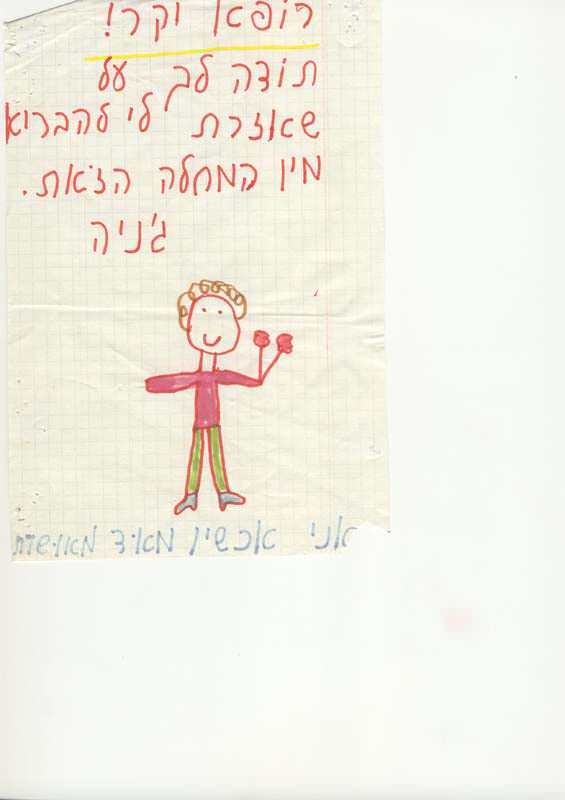 רופא יקר!
תודה לך על
שאוזרת לי להבריא
מין המחלה הזאת.
ג'ניה
אני אכשיו מאוד מאושרת